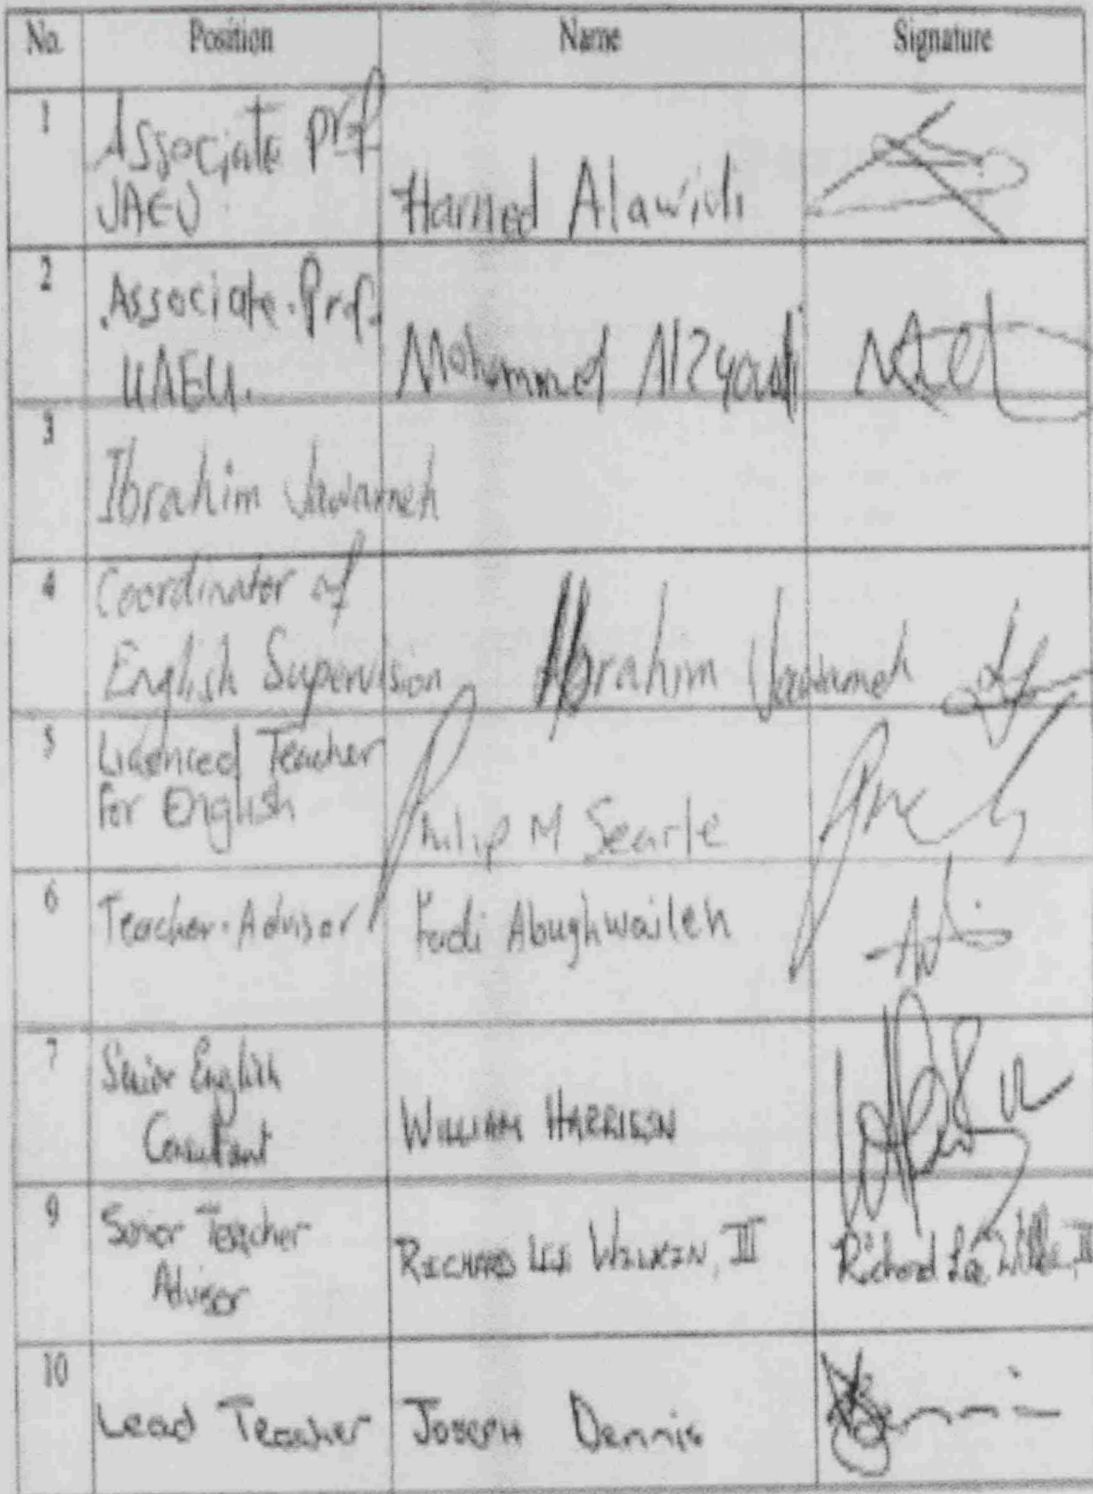 No. Position Name Signature
1 Associate Prof
UAEU Hamed Alawidi
2 Associate. Prof.
UAEU. Mohammed Alzyoudi
3
Ibrahim Jawarneh
4 Coordinator of
English Supervision Ibrahim Jawarneh
5 Licenced Teacher
for English Philip M Searle
6 Teacher-Advisor Fadi Abughwaileh
7 Senior English
Consultant WILLIAM HARRISON
9 Senior Teacher
Advisor RICHARD LEE WILKIN, III Richard Lee III
10
Lead Teacher JOSEPH Dennis